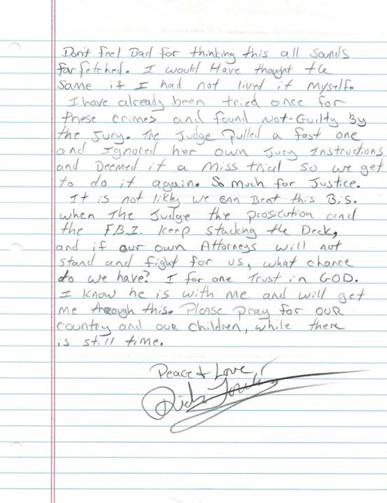 Dont feel bad for thinking this all sounds
far fetched. I would Have thought the
Same if I had not lived it myself.
I have already been tried once for
these crimes and found Not-Guilty By
the Jury. The Judge Pulled a fast one
and Ignored her own Jury Instructions
and Deemed it a Miss trial so we get
to do it again. So much for Justice.
It is not likly we can Beat this B.S.
when The Judge the prosicution and
the F.B.I. keep stacking the Deck,
and if our own Attorneys will not
stand and fight for us, what chance
do we have? I for one Trust in GOD.
I know he is with me and will get
me through this. Please pray for OUR
country and our children, while there
is still time.
Peace & Love,